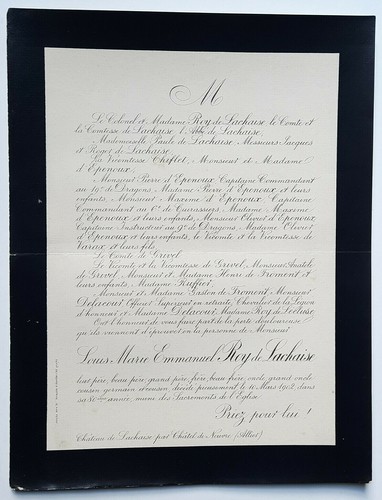 M
Le Colonel et Madame Roy de Lachaise le Comte et
la Comtesse de Lachaise, l'Abbé de Lachaise,
Mademoiselle Paule de Lachaise, Messieurs Jacques
et Roger de Lachaise,
La Vicomtesse Chiflet, Monsieur et Madame
d'Eponoux,
Monsieur Pierre d'Eponoux Capitaine Commandant
au 19e de Dragons, Madame Pierre d'Eponoux et leurs
enfants, Monsieur Maxime d'Eponoux Capitaine
Commandant au de Cuirassiers, Madame Maxime
d'Eponoux et leurs enfants, Monsieur Olivier d'Eponoux,
Capitaine Instructeur au 9e de Dragons, Madame Olivier
d'Eponoux et leurs enfants, le Vicomte et la Vicomtesse de
Vaux et leurs fils,
Le Comte de Grivel
Le Vicomte et la Vicomtesse de Grivel, Monsieur Anatole
de Grivel, Monsieur et Madame Henri de Froment et leurs
enfants, Madame Ruffier,
Monsieur et Madame Gaston de Froment, Monsieur
Delacour Officier Supérieur en retraite, Chevalier de la Légion
d'honneur et Madame Delacour, Madame Roy de Lécluse,
Ont l'honneur de vous faire part de la perte douloureuse
qu'ils viennent d'éprouver en la personne de Monsieur
Louis Marie Emmanuel Roy de Lachaise
leur père, beau père, grand père, frère, beau frère, oncle, grand oncle
cousin germain et cousin, décédé pieusement le Mars 1902, dans
sa année, muni des Sacrements de l'Eglise.
Priez pour lui !
Château de Lachaise par Châtel de Neuvre (Allier)